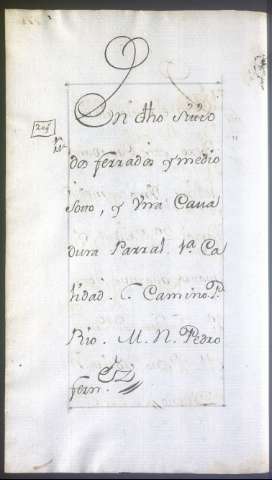 En dho sitio
dos ferrados y medio
soto, y Vna Caua
dura Parral. 1ª. Ca
lidad. L. Camino. P.
Rio. M. N. Pedro
fern.